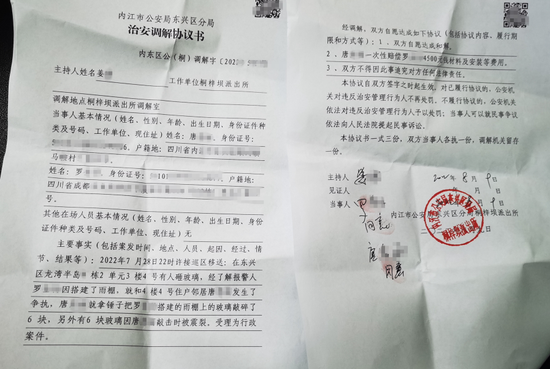 内江市公安局东兴区分局
治安调解协议书
内东区公（桐）调解字〔202
主持人姓名姜
工作单位桐梓坝派出所
调解地点桐梓坝派出所调解室
当事人基本情况（姓名、性别、年龄、出生日期、身份证件种
类及号码、工作单位、现住址）唐 ，身份证号：
，户籍地：四川省内
马 村
姓名：罗 ，身份证号：5101 ，户籍地：
四川省成都
其他在场人员基本情况（姓名、性别、年龄、出生日期、身
份证件种类及号码、工作单位、现住址）无
主要事实（包括案发时间、地点、人员、起因、经过、情
节、结果等）：2022年7月28日22时许接巡区移送：在东兴
区龙湾半岛 栋2单元3楼4号有人砸玻璃，经了解报警人
罗 因搭建了雨棚，就和4楼4号住户邻居唐 发生了
争执，唐 就拿锤子把罗 搭建的雨棚上的玻璃敲碎了
6块，另外有6块玻璃因唐 敲击时被震裂。受理为行政
案件。
经调解，双方自愿达成如下协议（包括协议内容、履行期
限和方式等）：1、双方自愿达成和解。
2、唐 一次性赔偿罗 4500元材料及安装等费用。
3、双方不得因此事追究对方任何法律责任。
本协议自双方签字之时起生效。对已履行协议的，公安机
关对违反治安管理行为人不再处罚。不履行协议的，公安机关
依法对违反治安管理行为人予以处罚；当事人可以就民事争议
依法向人民法院提起民事诉讼。
本协议书一式三份，双方当事人各执一份，调解机关留存
一份。
主持人 姜
2022年8月9日
见证人
当事人 罗
同意
内江市公安局东兴区分局桐梓坝派出所
唐
同意